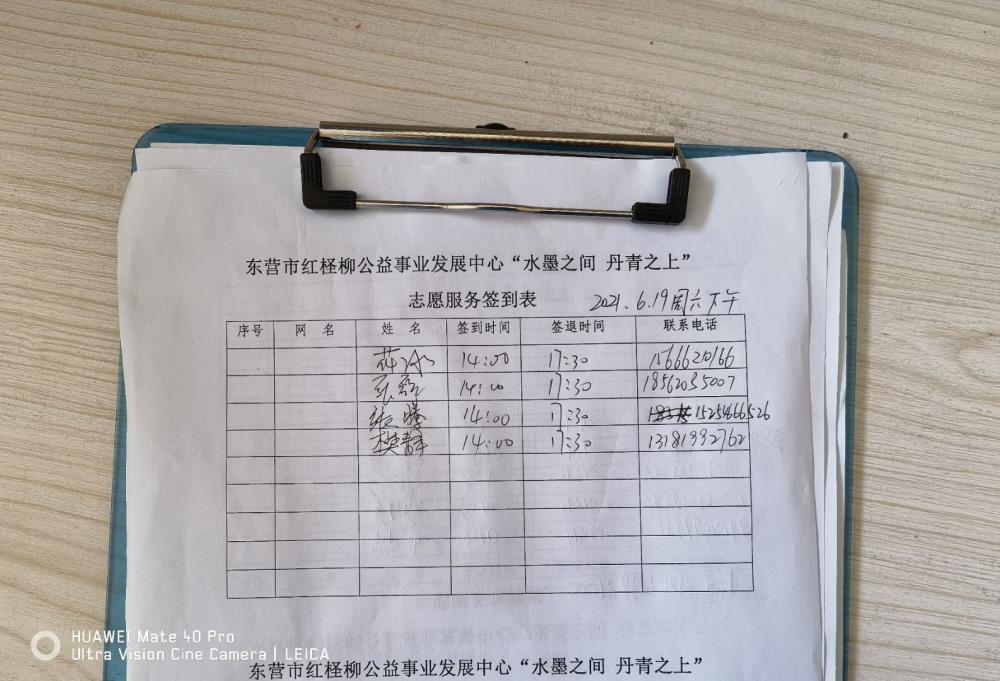 东营市红柽柳公益事业发展中心“水墨之间 丹青之上”
志愿服务签到表 2021.6.19周六下午
序号 网 名 姓 名 签到时间 签退时间 联系电话
14:00 17:30
14:00 17:30 18562035007
张 14:00 17:30 15254666526
樊群 14:00 17:30 13181992762
HUAWEI Mate 40 Pro
Ultra Vision Cine Camera | LEICA
东营市红柽柳公益事业发展中心“水墨之间 丹青之上”